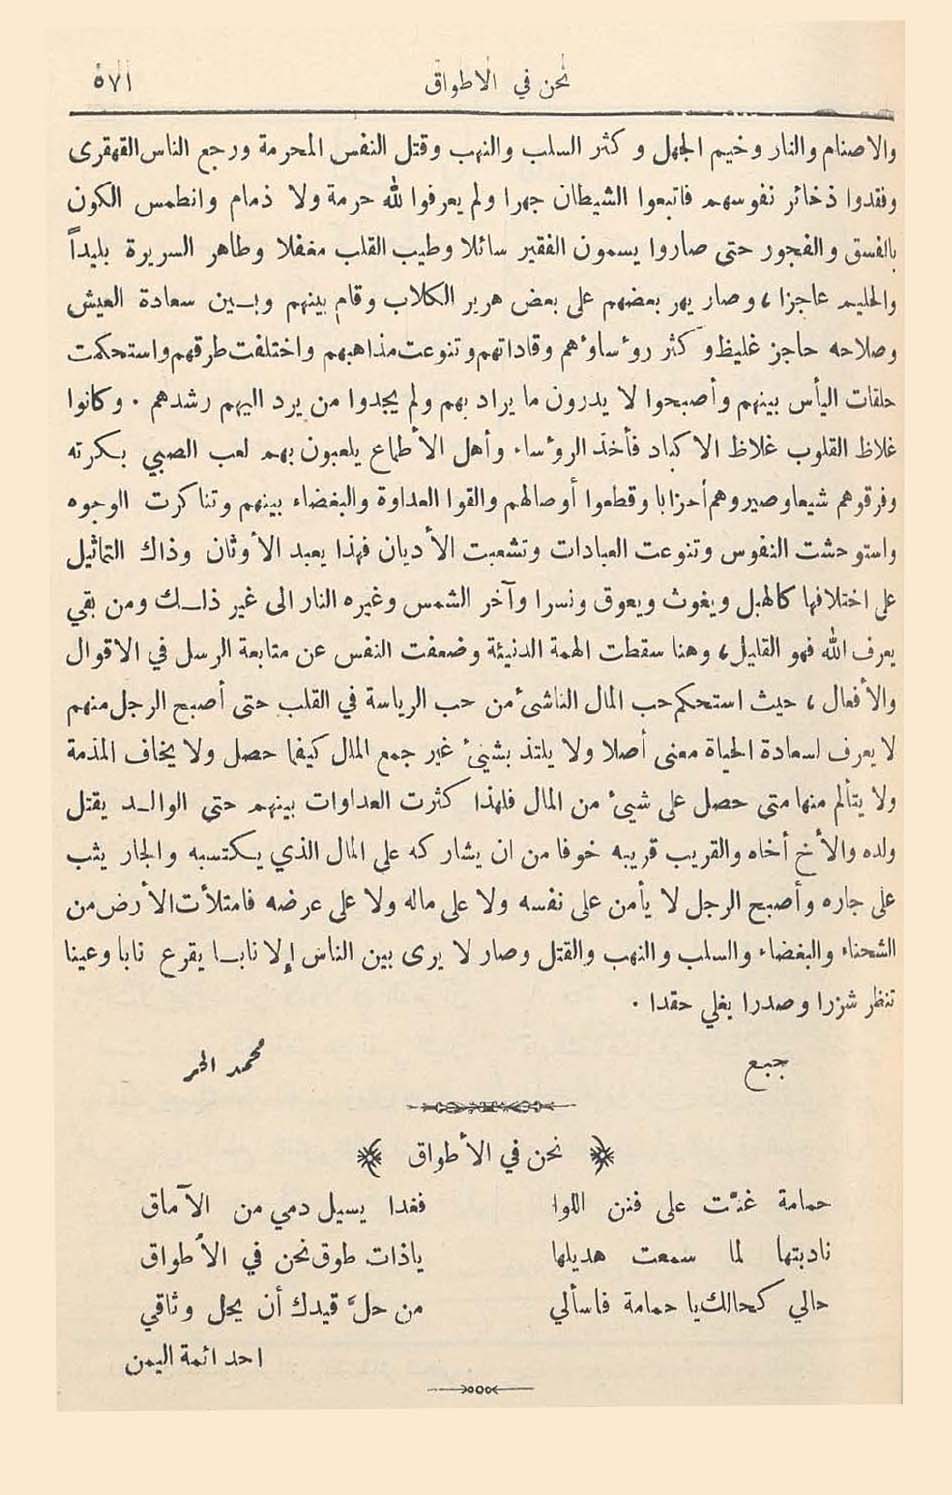 نحن في الاطواق ٥٧١
والاصنام والنار وخيم الجهل و كثر السلب والنهب وقتل النفس المحرمة ورجع الناس القهقرى
وفقدوا ذخائر نفوسهم فاتبعوا الشيطان جهرا ولم يعرفوا لله حرمة ولا ذمام وانطمس الكون
بالفسق والفجور حتى صاروا يسمون الفقير سائلا وطيب القلب مغفلا وطاهر السريرة بليداً
والحليم عاجزا، وصار يهر بعضهم على بعض هرير الكلاب وقام بينهم وبين سعادة العيش
وصلاحه حاجز غليظ و كثر روٴساوٴهم وقاداتهم وتنوعت مذاهبهم واختلفت طرقهم واستحكمت
حلقات اليأس بينهم وأصبحوا لا يدرون ما يراد بهم ولم يجدوا من يرد اليهم رشدهم . وكانوا
غلاظ القلوب غلاظ الاكباد فأخذ الروٴساء وأهل الأطماع يلعبون بهم لعب الصبي بكرته
وفرقوهم شيعا وصيروهم أحزابا وقطعوا أوصالهم والقوا العداوة والبغضاء بينهم وتناكرت الوجوه
واستوحشت النفوس وتنوعت العبادات وتشعبت الأديان فهذا يعبد الأوثان وذاك التماثيل
على اختلافها كالهبل ويغوث ويعوق ونسرا وآخر الشمس وغيره النار الى غير ذلك ومن بقي
يعرف الله فهو القليل، وهنا سقطت الهمة الدنيئة وضعفت النفس عن متابعة الرسل في الاقوال
والأفعال، حيث استحكم حب المال الناشئ من حب الرياسة في القلب حتى أصبح الرجل منهم
لا يعرف لسعادة الحياة معنى أصلا ولا يلتذ بشيئ غير جمع المال كيفما حصل ولا يخاف المذمة
ولا يتألم منها متى حصل على شيئ من المال فلهذا كثرت العداوات بينهم حتى الوالد يقتل
ولده والأخ أخاه والقريب قريبه خوفا من ان يشاركه على المال الذي يكتسبه والجار يثب
على جاره وأصبح الرجل لا يأمن على نفسه ولا على ماله ولا على عرضه فامتلأت الأرض من
الشحناء والبغضاء والسلب والنهب والقتل وصار لا يرى بين الناس إلا نابا يقرع نابا وعينا
تنظر شزرا وصدرا يغلي حقدا .
جبع محمد الحر
نحن في الأطواق
حمامة غنَّت على فنن اللوا فغدا يسيل دمي من الآماق
ناديتها لما سمعت هديلها ياذات طوق نحن في الأطواق
حالي كحالك يا حمامة فاسألي من حلَّ قيدك أن يحل وثاقي
احد ائمة اليمن